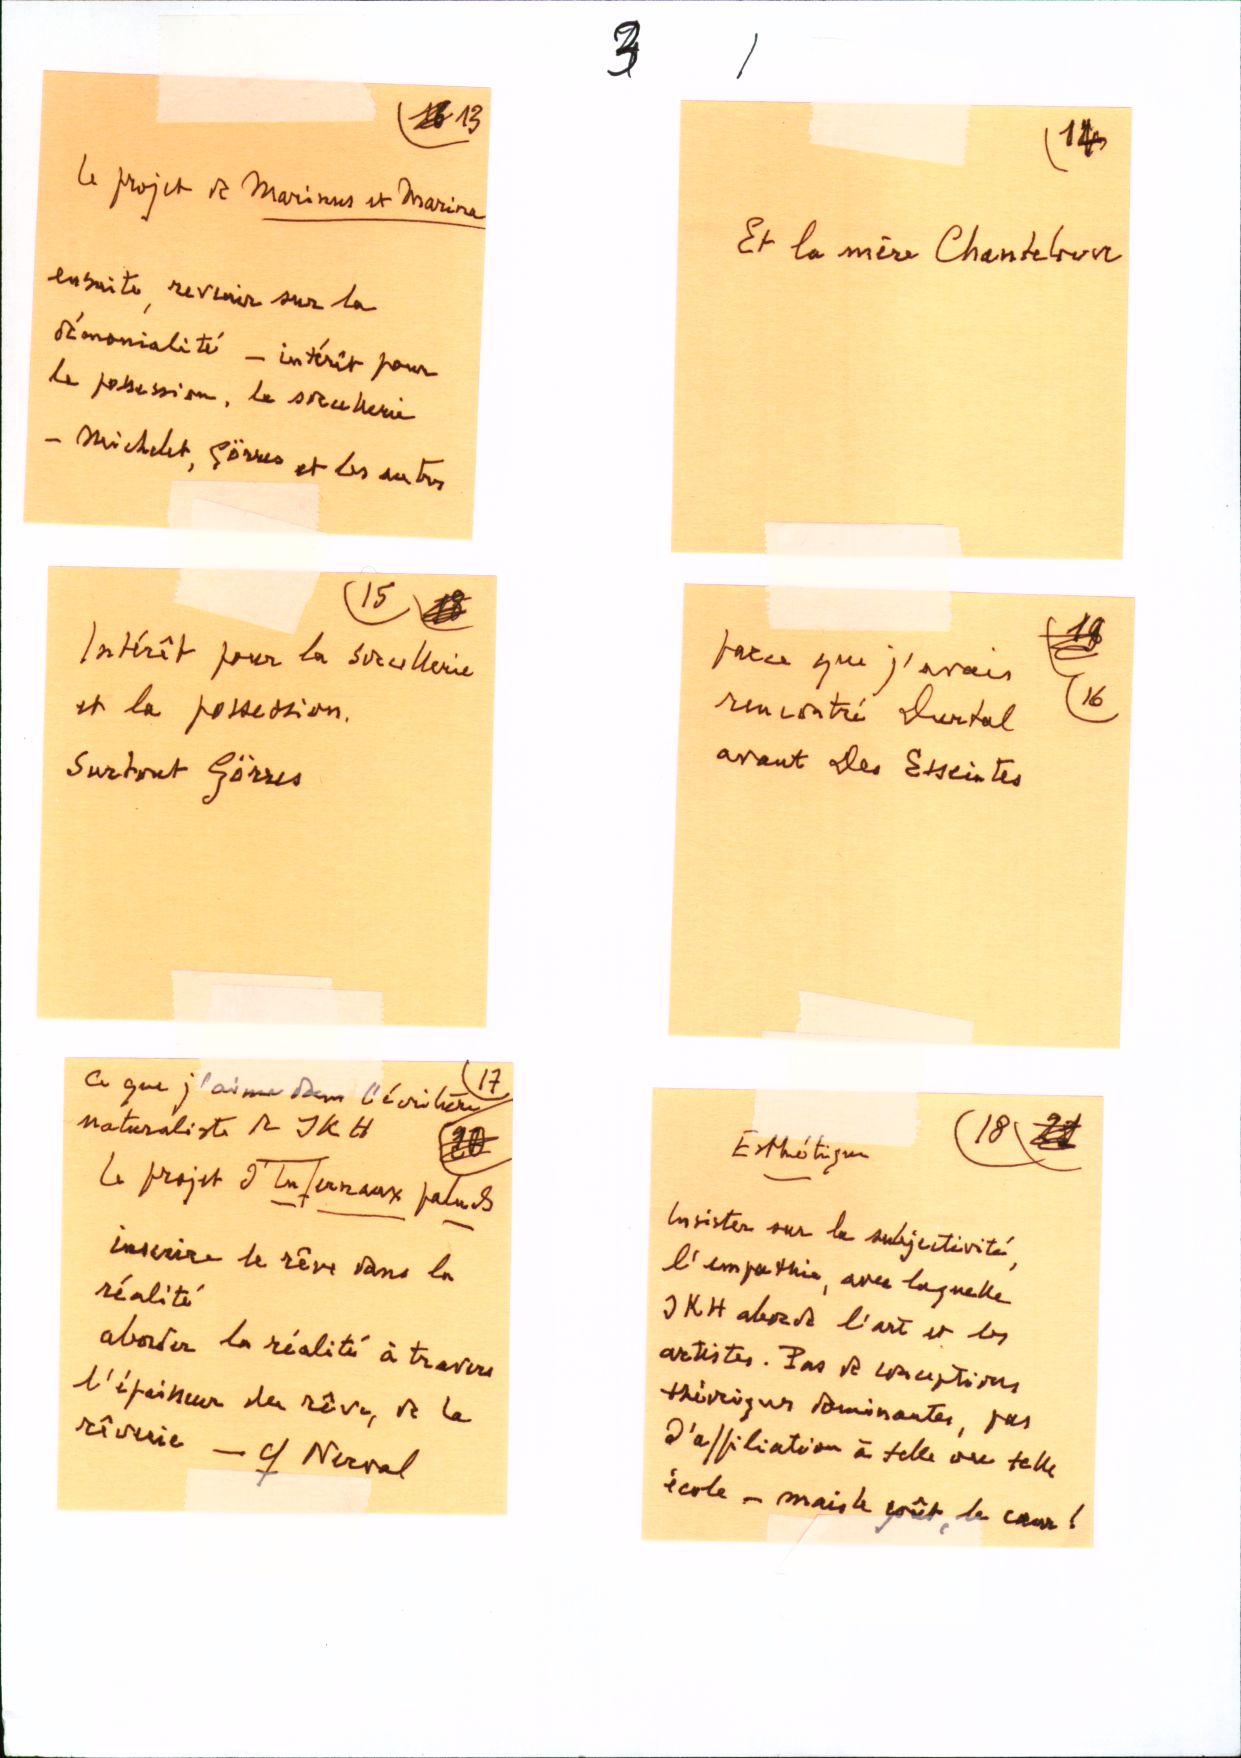 3 /
13
Le projet de Marinus et Marina
ensuite, revenir sur la
démonialité – intérêt pour
la possession, la sorcellerie
– Michelet, Görres et les autres
14
Et la mère Chantelouve
15 18
Intérêt pour la sorcellerie
et la possession.
Surtout Görres
19
16
parce que j'avais
rencontré Durtal
avant Des Esseintes
17
Ce que j'aime dans l'écriture
naturaliste de JKH
20
Le projet d'Infernaux paluds
inscrire le rêve dans la
réalité
aborder la réalité à travers
l'épaisseur du rêve, de la
rêverie – cf Nerval
18 21
Esthétique
Insister sur la subjectivité,
l'empathie, avec laquelle
JKH aborde l'art et les
artistes. Pas de conceptions
théoriques dominantes, pas
d'affiliation à telle ou telle
école – mais le goût, le cœur !